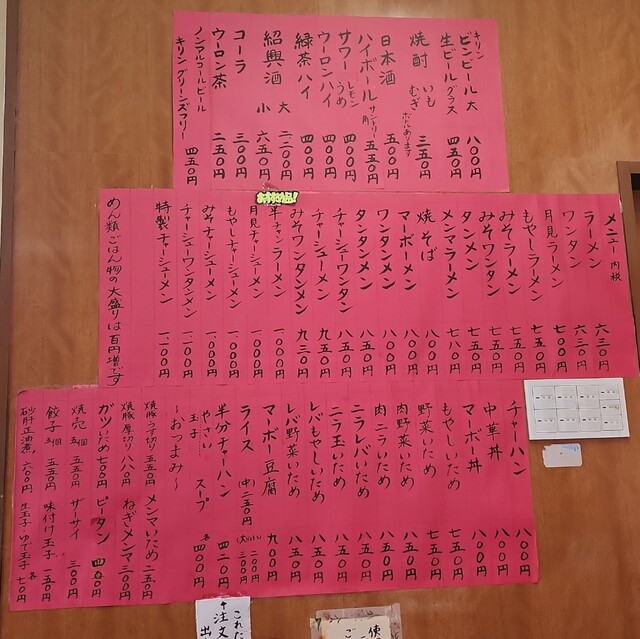 キリン
ビンビール 大 八〇〇円
生ビール グラス 四五〇円
焼酎 いも むぎ 三五〇円
ボールあります
日本酒 五〇〇円
ハイボール サントリー角 五五〇円
サワー レモン うめ 四〇〇円
ウーロンハイ 四〇〇円
緑茶ハイ 四〇〇円
紹興酒 大 二二〇〇円
小 六五〇円
コーラ 三〇〇円
ウーロン茶 二五〇円
ノンアルコールビール
キリン グリーンズフリー 四五〇円
メニュー 内税
ラーメン 六三〇円
ワンタン 六三〇円
月見ラーメン 七〇〇円
もやしラーメン 七五〇円
みそラーメン 七五〇円
みそワンタン 七五〇円
タンメン 七五〇円
メンマラーメン 七八〇円
焼そば 八〇〇円
マーボーメン 八〇〇円
ワンタンメン 八〇〇円
タンタンメン 八五〇円
チャーシューワンタン 八五〇円
チャーシューメン 九五〇円
みそワンタンメン 九三〇円
おすすめ品!
半チャンラーメン 一、〇〇〇円
月見チャーシューメン 一、〇〇〇円
もやしチャーシューメン 一、〇〇〇円
みそチャーシューメン 一、〇〇〇円
チャーシューワンタンメン 一、一〇〇円
特製チャーシューメン 一、一〇〇円
めん類ごはん物の大盛りは百円増です
チャーハン 八〇〇円
中華丼 八〇〇円
マーボー丼 八〇〇円
もやしいため 七五〇円
野菜いため 七五〇円
肉野菜いため 八五〇円
肉ニラいため 八五〇円
ニラレバいため 八五〇円
ニラ玉いため 八五〇円
レバもやしいため 八五〇円
レバ野菜いため 八五〇円
マーボー豆腐 九〇〇円
ライス (中)二五〇円 (小)二〇〇円 (大)三〇〇円
半分チャーハン 四二〇円
やさい 玉子 スープ 各四〇〇円
〜おつまみ〜
焼豚うす切り 五五〇円 メンマいため 二五〇円
焼豚厚切り 八八〇円 ねぎメンマ 三〇〇円
ガツいため 七〇〇円 ピータン 四〇〇円
焼売 5個 五五〇円 ザーサイ 三〇〇円
餃子 5個 五五〇円 味付け玉子 一五〇円
砂肝正油煮 六〇〇円 生玉子・ゆで玉子 各七〇円
これた
↑注文
出
使
ご